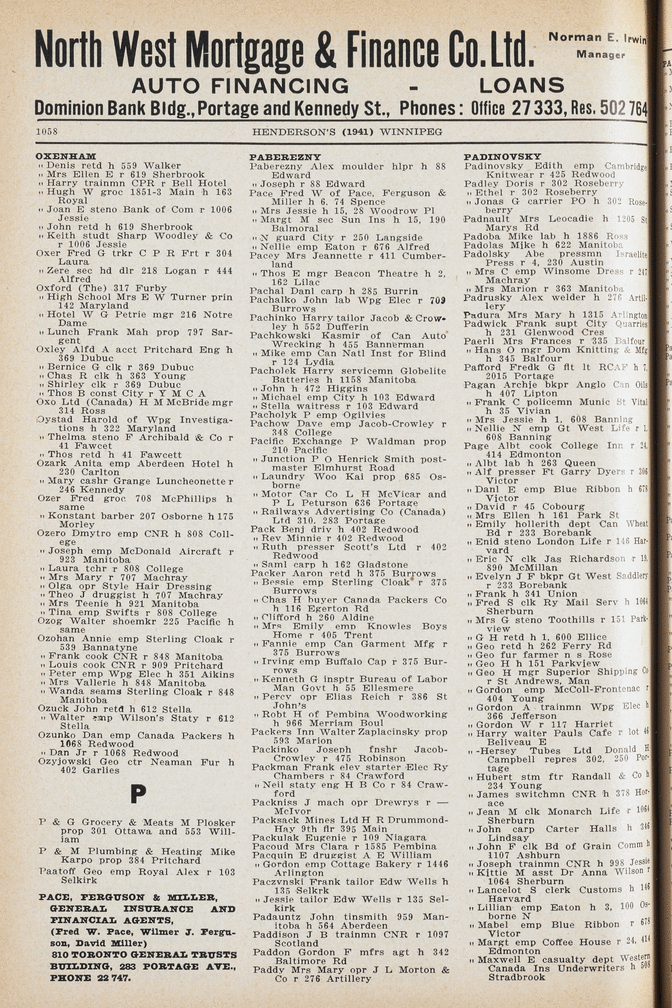 North West Mortgage & Finance Co. Ltd.
Norman E. Irwin
Manager
AUTO FINANCING - LOANS
Dominion Bank Bldg., Portage and Kennedy St., Phones: Office 27 333, Res. 502 764
1058
HENDERSON'S (1941) WINNIPEG
OXENHAM
" Denis retd h 559 Walker
" Mrs Ellen E r 619 Sherbrook
" Harry trainmn CPR r Bell Hotel
" Hugh W groc 1851-3 Main h 163
Royal
" Joan E steno Bank of Com r 1006
Jessie
" John retd h 619 Sherbrook
" Keith studt Sharp Woodley & Co
r 1006 Jessie
Oxer Fred G trkr C P R Frt r 304
Laura
" Zere sec hd dlr 218 Logan r 444
Alfred
Oxford (The) 317 Furby
" High School Mrs E W Turner prin
142 Maryland
" Hotel W G Petrie mgr 216 Notre
Dame
" Lunch Frank Mah prop 797 Sar-
gent
Oxley Alfd A acct Pritchard Eng h
369 Dubuc
" Bernice G clk r 369 Dubuc
" Chas R clk h 363 Young
" Shirley clk r 369 Dubuc
" Thos B const City r Y M C A
Oxo Ltd (Canada) H M McBride mgr
314 Ross
Oystad Harold of Wpg Investiga-
tions h 322 Maryland
" Thelma steno F Archibald & Co r
41 Fawcet
" Thos retd h 41 Fawcett
Ozark Anita emp Aberdeen Hotel h
230 Carlton
" Mary cashr Grange Luncheonette r
246 Kennedy
Ozer Fred groc 708 McPhillips h
same
" Konstant barber 207 Osborne h 175
Morley
Ozero Dmytro emp CNR h 808 Coll-
ege
" Joseph emp McDonald Aircraft r
923 Manitoba
" Laura tchr r 808 College
" Mrs Mary r 707 Machray
" Olga opr Style Hair Dressing
" Theo J druggist h 707 Machray
" Mrs Teenie h 921 Manitoba
" Tina emp Swifts r 808 College
Ozog Walter shoemkr 225 Pacific h
same
Ozohan Annie emp Sterling Cloak r
539 Bannatyne
" Frank cook CNR r 848 Manitoba
" Louis cook CNR r 909 Pritchard
" Peter emp Wpg Elec h 351 Aikins
" Mrs Vallerie h 848 Manitoba
" Wanda seams Sterling Cloak r 848
Manitoba
Ozuck John retd h 612 Stella
" Walter emp Wilson's Staty r 612
Stella
Ozunko Dan emp Canada Packers h
1068 Redwood
" Dan Jr r 1068 Redwood
Ozyjowski Geo ctr Neaman Fur h
402 Garlies
P
P & G Grocery & Meats M Plosker
prop 301 Ottawa and 553 Will-
iam
P & M Plumbing & Heating Mike
Karpo prop 384 Pritchard
Paatoff Geo emp Royal Alex r 103
Selkirk
PACE, FERGUSON & MILLER,
GENERAL INSURANCE AND
FINANCIAL AGENTS,
(Fred W. Pace, Wilmer J. Fergu-
son, David Miller)
810 TORONTO GENERAL TRUSTS
BUILDING, 283 PORTAGE AVE.,
PHONE 22 747.
PABEREZNY
Paberezny Alex moulder hlpr h 88
Edward
" Joseph r 88 Edward
Pace Fred W of Pace, Ferguson &
Miller h 6, 74 Spence
" Mrs Jessie h 15, 28 Woodrow Pl
" Margt M sec Sun Ins h 15, 190
Balmoral
" N guard City r 250 Langside
" Nellie emp Eaton r 676 Alfred
Pacey Mrs Jeannette r 411 Cumber-
land
" Thos E mgr Beacon Theatre h 2,
162 Lilac
Pachal Danl carp h 285 Burrin
Pachalko John lab Wpg Elec r 709
Burrows
Pachinko Harry tailor Jacob & Crow-
ley h 552 Dufferin
Pachkowski Kasmir of Can Auto
Wrecking h 455 Bannerman
" Mike emp Can Natl Inst for Blind
r 124 Lydia
Pacholek Harry servicemn Globelite
Batteries h 1158 Manitoba
" John h 472 Higgins
" Michael emp City h 103 Edward
" Stella waitress r 103 Edward
Pacholyk P emp Ogilvies
Pachow Dave emp Jacob-Crowley r
348 College
Pacific Exchange P Waldman prop
210 Pacific
" Junction P O Henrick Smith post-
master Elmhurst Road
" Laundry Woo Kai prop 685 Os-
borne
" Motor Car Co L H McVicar and
P L Peterson 636 Portage
" Railways Advertising Co (Canada)
Ltd 310, 283 Portage
Pack Benj driv h 402 Redwood
" Rev Minnie r 402 Redwood
" Ruth presser Scott's Ltd r 402
Redwood
" Saml carp h 162 Gladstone
Packer Aaron retd h 375 Burrows
" Bessie emp Sterling Cloak r 375
Burrows
" Chas H buyer Canada Packers Co
h 116 Egerton Rd
" Clifford h 260 Aldine
" Mrs Emily emp Knowles Boys
Home r 405 Trent
" Fannie emp Can Garment Mfg r
375 Burrows
" Irving emp Buffalo Cap r 375 Bur-
rows
" Kenneth G insptr Bureau of Labor
Man Govt h 55 Ellesmere
" Percy opr Elias Reich r 386 St
John's
" Robt H of Pembina Woodworking
h 966 Merriam Boul
Packers Inn Walter Zaplacinsky prop
593 Marion
Packinko Joseph fnshr Jacob-
Crowley r 475 Robinson
Packman Frank elev starter Elec Ry
Chambers r 84 Crawford
" Neil staty eng H B Co r 84 Craw-
ford
Packniss J mach opr Drewrys r —
McIvor
Packsack Mines Ltd H R Drummond-
Hay 9th flr 395 Main
Packulak Eugenie r 109 Niagara
Pacoud Mrs Clara r 1585 Pembina
Pacquin E druggist A E William
" Gordon emp Cottage Bakery r 1446
Arlington
Paczvnski Frank tailor Edw Wells h
135 Selkrk
" Jessie tailor Edw Wells r 135 Sel-
kirk
Padauntz John tinsmith 959 Man-
itoba h 564 Aberdeen
Paddison J B trainmn CNR r 1097
Scotland
Paddon Gordon F mfrs agt h 342
Baltimore Rd
Paddy Mrs Mary opr J L Morton &
Co r 276 Artillery
PADINOVSKY
Padinovsky Edith emp Cambridge
Knitwear r 425 Redwood
Padley Doris r 302 Roseberry
" Ethel r 302 Roseberry
" Jonas G carrier PO h 302 Rose-
berry
Padnault Mrs Leocadie h 1205 St
Marys Rd
Padoba Mike lab h 1886 Ross
Padolas Mike h 622 Manitoba
Padolsky Abe pressmn Israelite
Press r 4, 230 Austin
" Mrs C emp Winsome Dress r 217
Machray
" Mrs Marion r 363 Manitoba
Padrusky Alex welder h 276 Artil-
lery
Padura Mrs Mary h 1315 Arlington
Padwick Frank supt City Quarries
h 231 Glenwood Cres
Paerli Mrs Frances r 335 Balfour
" Hans O mgr Dom Knitting & Mfg
h 345 Balfour
Pafford Fredk G flt lt RCAF h 7,
2015 Portage
Pagan Archie bkpr Anglo Can Oils
h 407 Lipton
" Frank C policemn Munic St Vital
h 35 Vivian
" Mrs Jessie h 1, 608 Banning
" Nellie N emp Gt West Life r 1,
608 Banning
Page Albt cook College Inn r 24,
414 Edmonton
" Albt lab h 263 Queen
" Alf presser Ft Garry Dyers r 306
Victor
" Danl E emp Blue Ribbon h 678
Victor
" David r 45 Cobourg
" Mrs Ellen h 161 Park St
" Emily hollerith dept Can Wheat
Bd r 233 Borebank
" Enid steno London Life r 146 Har-
vard
" Eric N clk Jas Richardson r 19,
890 McMillan
" Evelyn J F bkpr Gt West Saddlery
r 233 Borebank
" Frank h 341 Union
" Fred S clk Ry Mail Serv h 1064
Sherburn
" Mrs G steno Toothills r 151 Park-
view
" G H retd h 1, 600 Ellice
" Geo retd h 262 Perry Rd
" Geo fur farmer n s Rose
" Geo H h 151 Parkview
" Geo H mgr Superior Shipping Co
r St Andrews, Man
" Gordon emp McColl-Frontenac r
404 Young
" Gordon A trainmn Wpg Elec h
366 Jefferson
" Gordon W r 117 Harriet
" Harry waiter Pauls Cafe r lot 46
Beliveau E
" -Hersey Tubes Ltd Donald E
Campbell repres 302, 250 Por-
tage
" Hubert stm ftr Randall & Co h
234 Young
" James switchmn CNR h 378 Hor-
ace
" Jean M clk Monarch Life r 1064
Sherburn
" John carp Carter Halls h 346
Lindsay
" John F clk Bd of Grain Comm h
1107 Ashburn
" Joseph trainmn CNR h 998 Jessie
" Kittie M asst Dr Anna Wilson r
1064 Sherburn
" Lancelot S clerk Customs h 146
Harvard
" Lillian emp Eaton h 3, 100 Os-
borne N
" Mabel emp Blue Ribbon r 678
Victor
" Margt emp Coffee House r 24, 414
Edmonton
" Maxwell E casualty dept Western
Canada Ins Underwriters h 508
Stradbrook